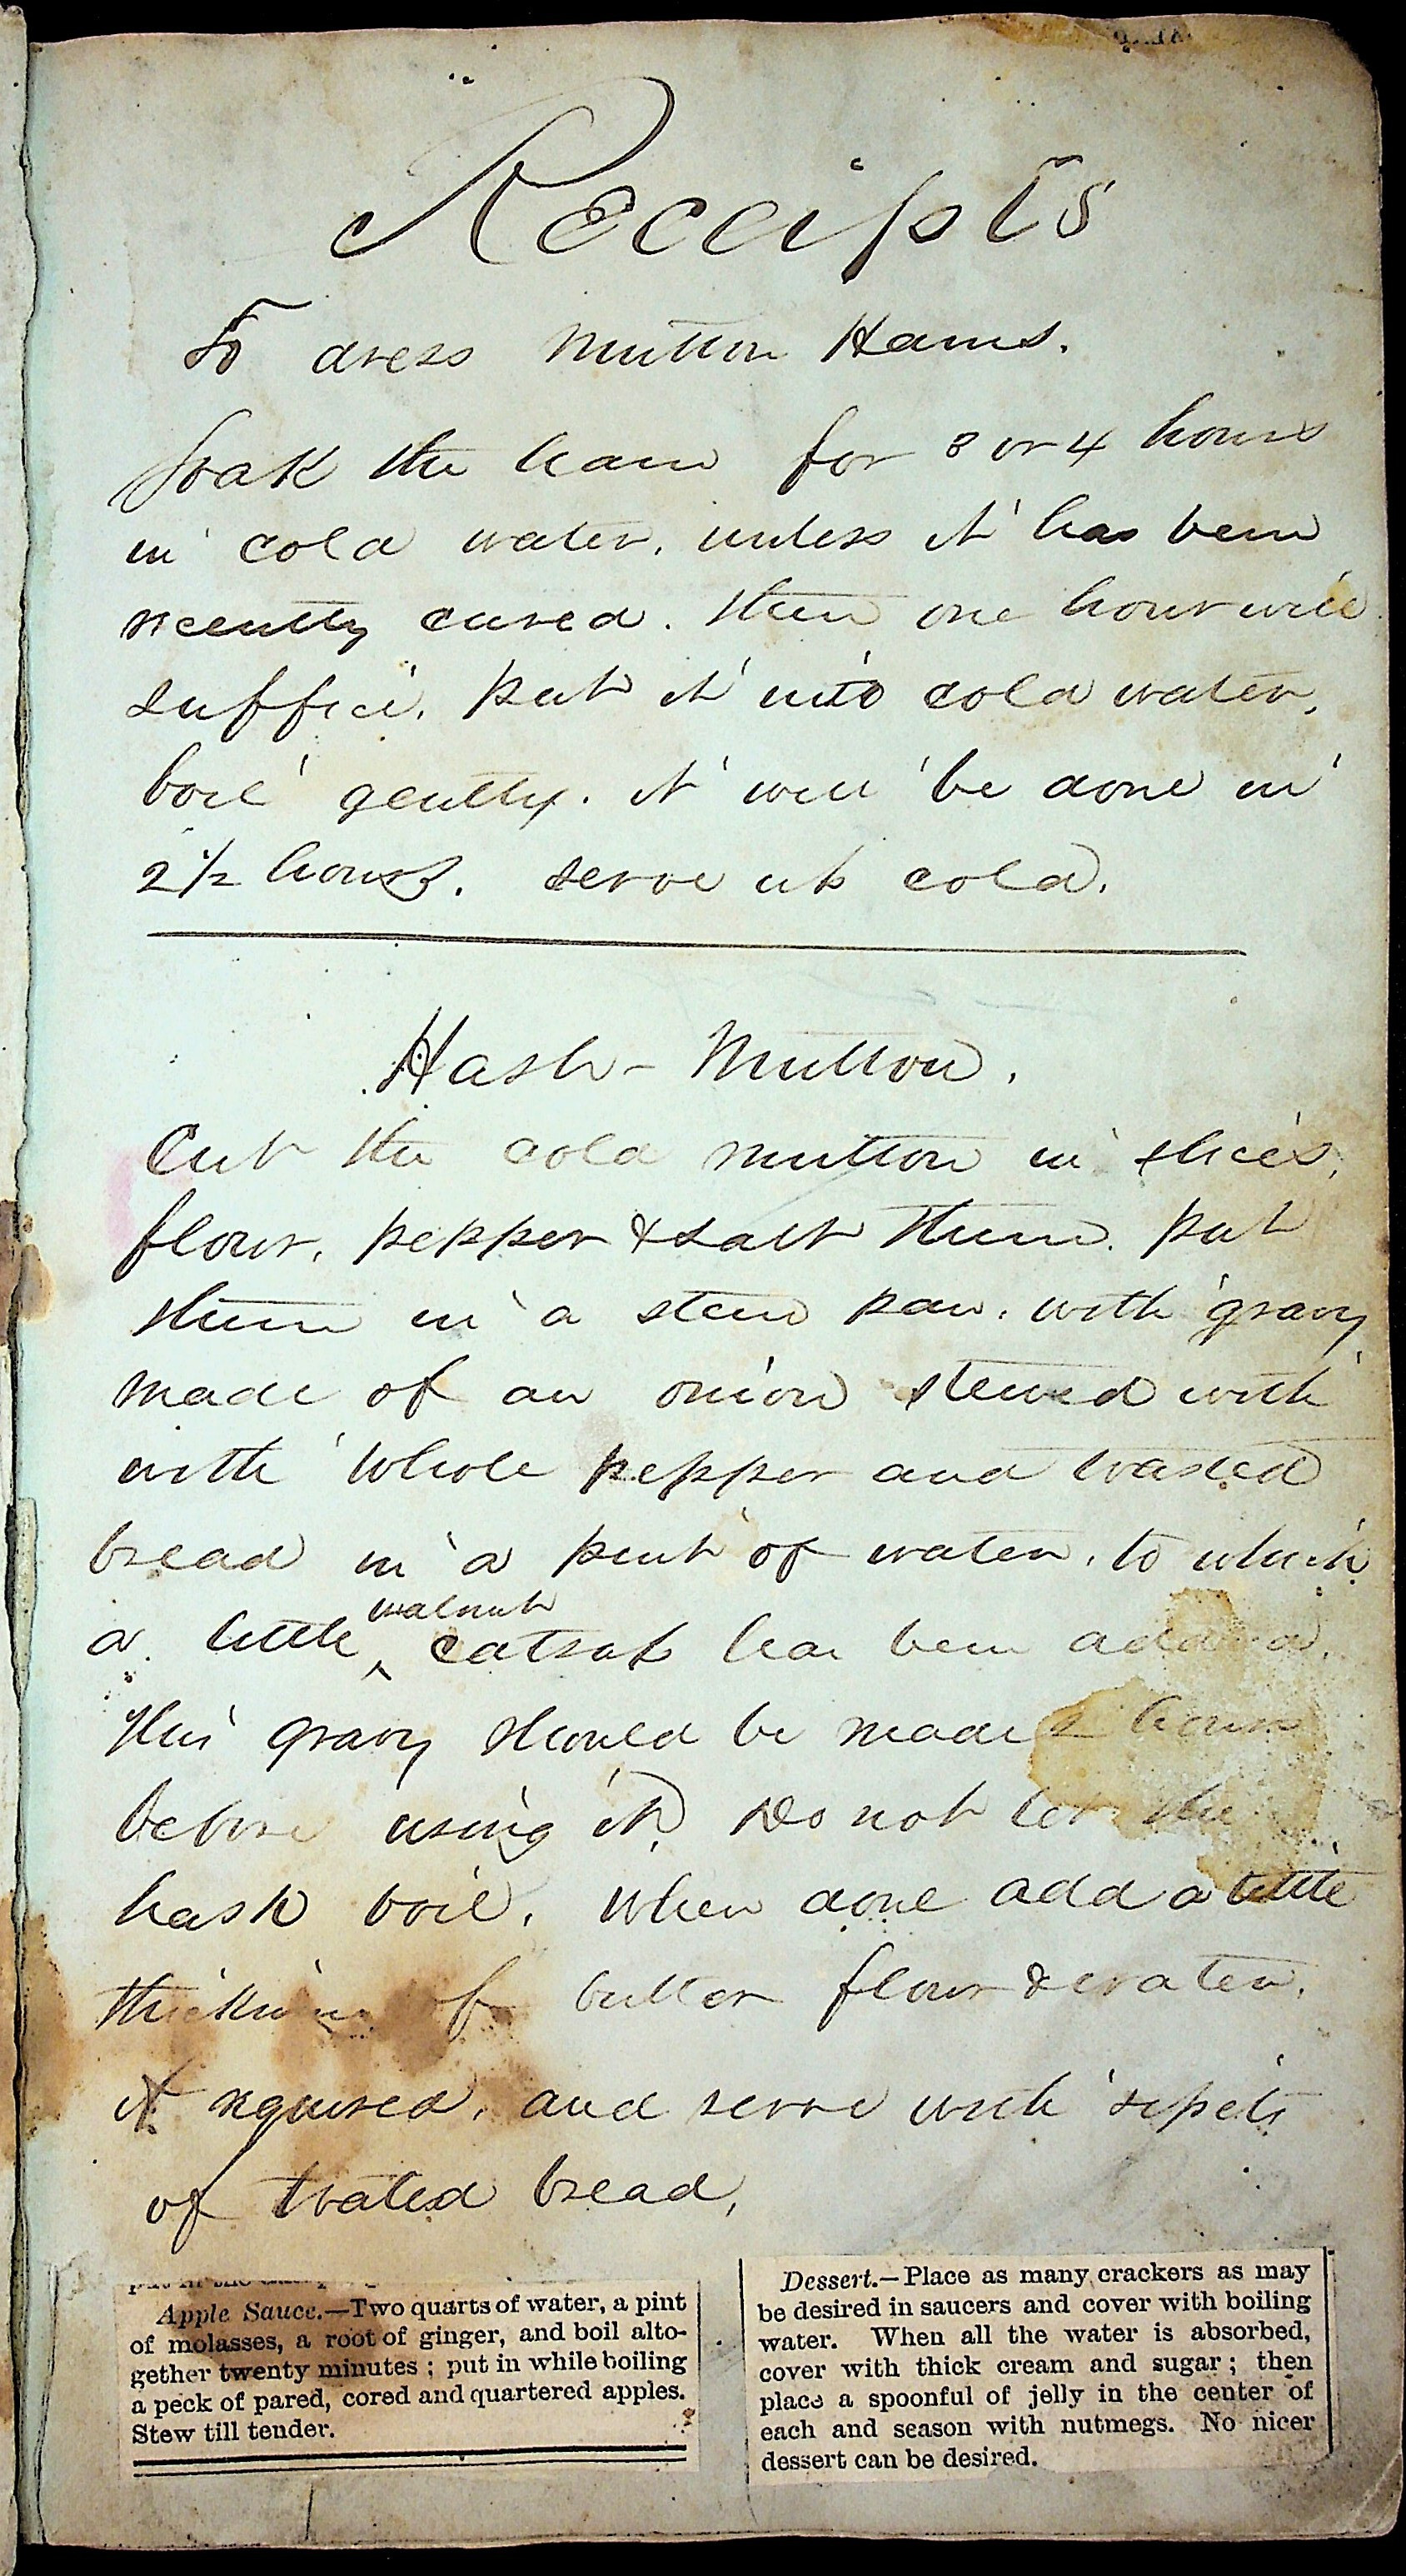 Receipts
To dress Mutton Hams.
Soak the ham for 3 or 4 hours
in cold water, unless it has been
recently cured. then one hour will
suffice. put it into cold water,
boil gently. it will be done in
2 1/2 hours. serve up cold.
Hash - Mutton.
Cut the cold mutton in slices,
flour, pepper & salt them. put
them in a stew pan, with gravy
made of an onion stewed with
with whole pepper and toasted
bread in a pint of water, to which
a little walnut catsup has been added.
This gravy should be made 2 hours
before using it. Do not let the
hash boil. When done add a little
thickning of butter flour & water.
if required, and serve with sipets
of toasted bread,
Apple Sauce.—Two quarts of water, a pint
of molasses, a root of ginger, and boil alto-
gether twenty minutes; put in while boiling
a peck of pared, cored and quartered apples.
Stew till tender.
Dessert.—Place as many crackers as may
be desired in saucers and cover with boiling
water. When all the water is absorbed,
cover with thick cream and sugar; then
place a spoonful of jelly in the center of
each and season with nutmegs. No nicer
dessert can be desired.